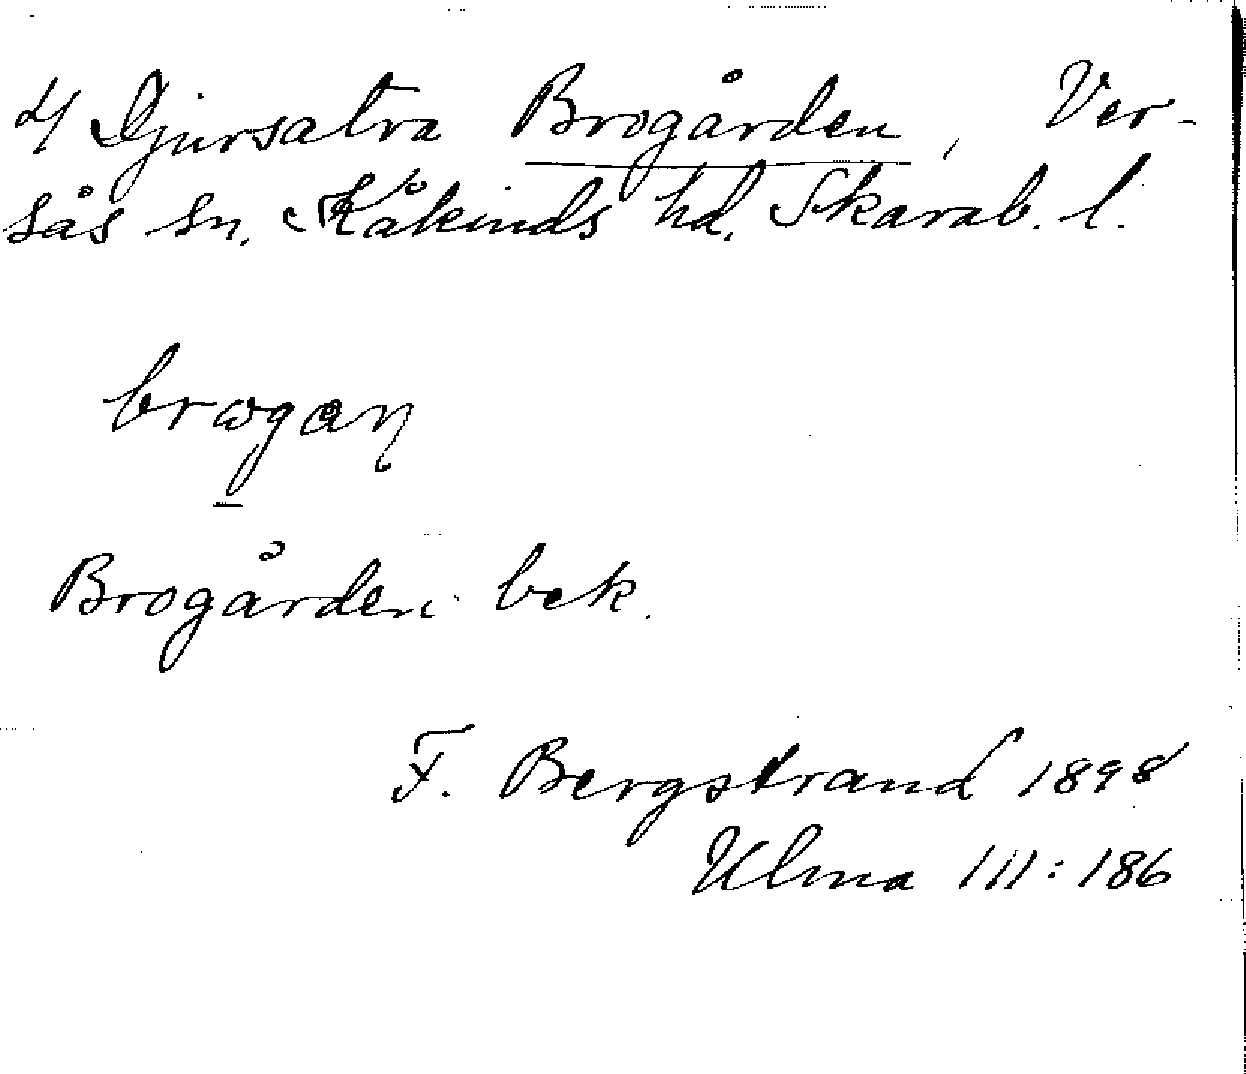 4/ Djursätra Brogården, Ver-
sås sn. Kåkinds hd. Skarab. l.
brωgan
Brogården bek.
F. Bergstrand 1898
Ulma 111:186